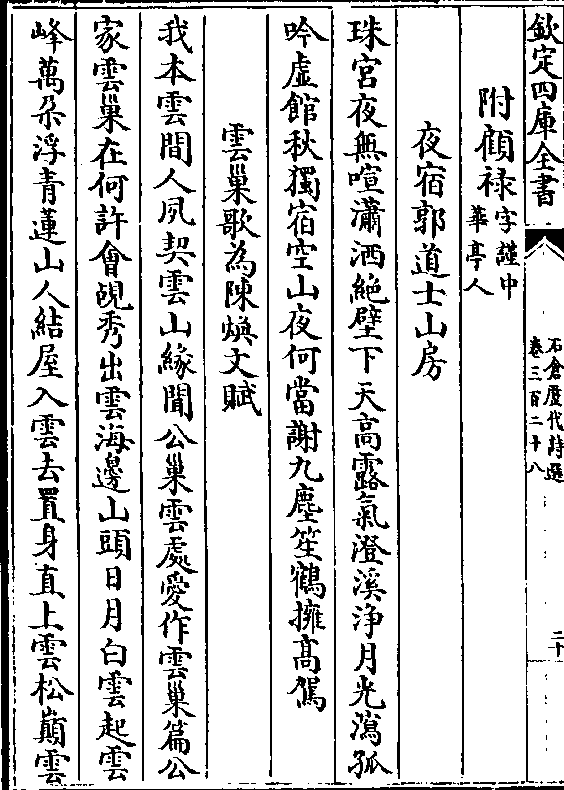 欽定四庫全書
石倉歷代詩選
卷三百二十八
二十
附顧祿字謹中
華亭人
夜宿郭道士山房
珠宮夜無喧瀟洒絶壁下天高露氣澄溪浄月光瀉孤
吟虛館秋獨宿空山夜何當謝九塵笙鶴擁高駕
雲巢歌為陳煥文賦
我本雲間人夙契雲山緣聞公巢雲處愛作雲巢篇公
家雲巢在何許會覘秀出雲海邊山頭日月白雲起雲
峰萬朶浮青蓮山人結屋入雲去置身直上雲松巔雲